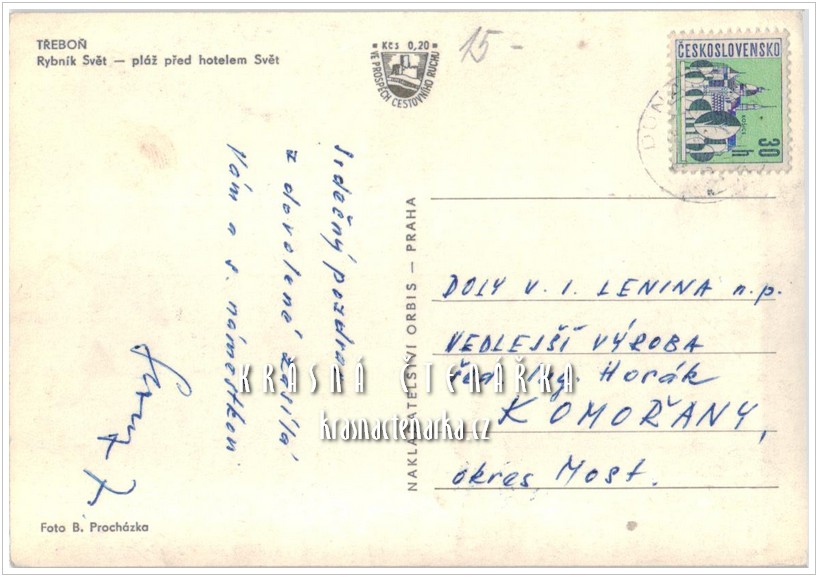 TŘEBOŇ
Rybník Svět — pláž před hotelem Svět
Kčs 0,20
VE PROSPĚCH CESTOVNÍHO RUCHU
15-
ČESKOSLOVENSKO
KOŠICE
30 h
Srdečný pozdrav
z dovolené zasílá
Vám a s. náměstkon
NAKLADATELSTVÍ ORBIS — PRAHA
DOLY V. I. LENINA n.p.
VEDLEJŠÍ VÝROBA
řed Ing. Horák
KOMOŘANY,
okres Most.
KRÁSNÁ ČTENÁŘKA
krasnactenarka.cz
Foto B. Procházka